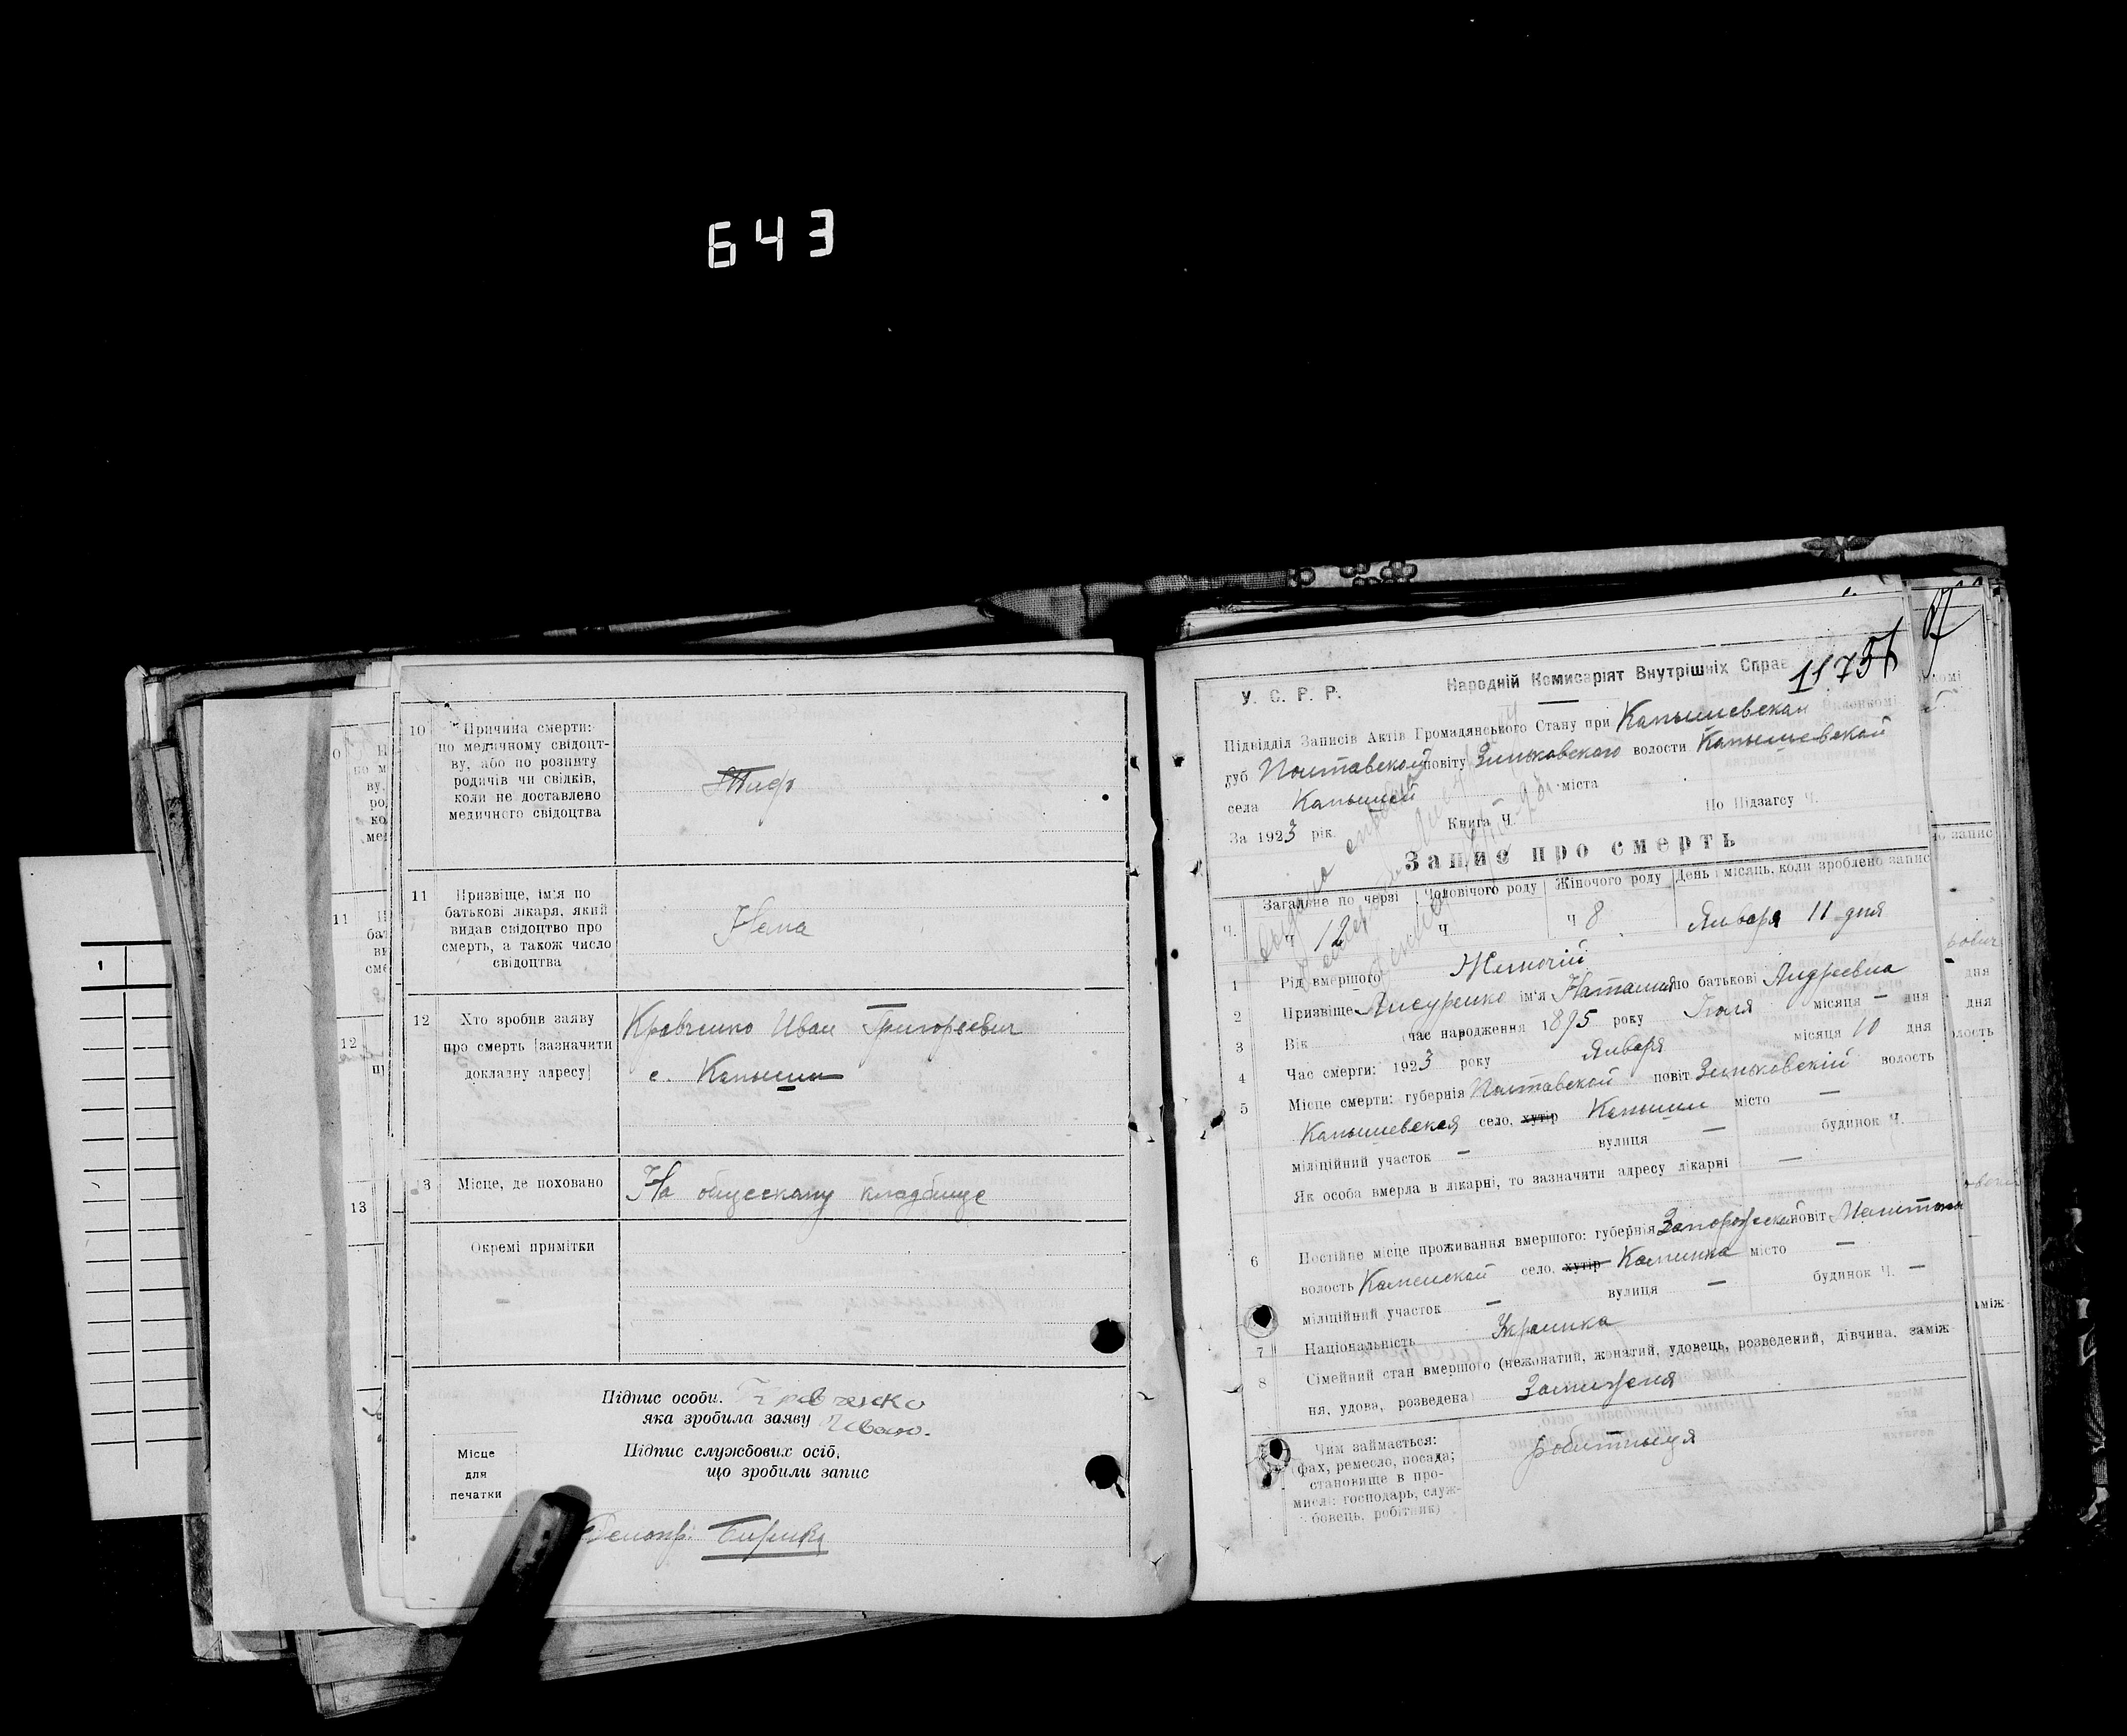 643
10
Причина смерти:
по медичному свідоцт-
ву, або по розпиту
родичів чи свідків,
коли не доставлено
медичного свідоцтва
Тиф
11
Призвіще, ім'я по
батькові лікаря, який
видав свідоцтво про
смерть, а також число
свідоцтва
Нема
12
Хто зробив заяву
про смерть (зазначити
докладну адресу)
Кравченко Иван Григореевич
с. Капыши
13
Місце, де поховано
На общескому кладбище
Окремі примітки
Підпис особи, Кравченко
яка зробила заяву Иван.
Підпис службових осіб,
що зробили запис
Місце
для
печатки
У. С. Р. Р.
Народній Комисаріят Внутрішніх Справ
Підвідділ Записів Актів Громадянського Стану при Капышевскан
губ Полтавской повіту Зиньковского волости Капышевской
села Капышей міста
За 1923 рік. Книга Ч. По Підзагсу Ч.
Запис про смерть
Ч. Загальне по черзі Чоловічого роду Жіночого роду День і місяць, коли зроблено запис
ч 12 ч ч 8 Января 11 дня
1 Рід вмершого Жиночій
2 Призвіще Лисуренко ім'я Наталия по батькові Андреевна
3 Вік (час народження 1895 року Июля місяця — дня
4 Час смерти: 1923 року Января місяця 10 дня
5 Місце смерти: губернія Полтавской повіт Зиньковскій волость
Капышевская село, хутір Капыши місто —
міліційний участок — вулиця — будинок Ч.
Як особа вмерла в лікарні, то зазначити адресу лікарні —
6 Постійне місце проживання вмершого: губернія Запорожеской повіт
волость Каменской село, хутір Каминка місто —
міліційний участок — вулиця — будинок Ч. —
7 Національність Украинка
8 Сімейний стан вмершого (нежонатий, жонатий, удовець, розведений, дівчина, заміж-
ня, удова, розведена) Замиженя
Чим займається:
фах, ремесло, посада;
становище в про-
мислі: господарь, служ-
бовець, робітник)
робитныця